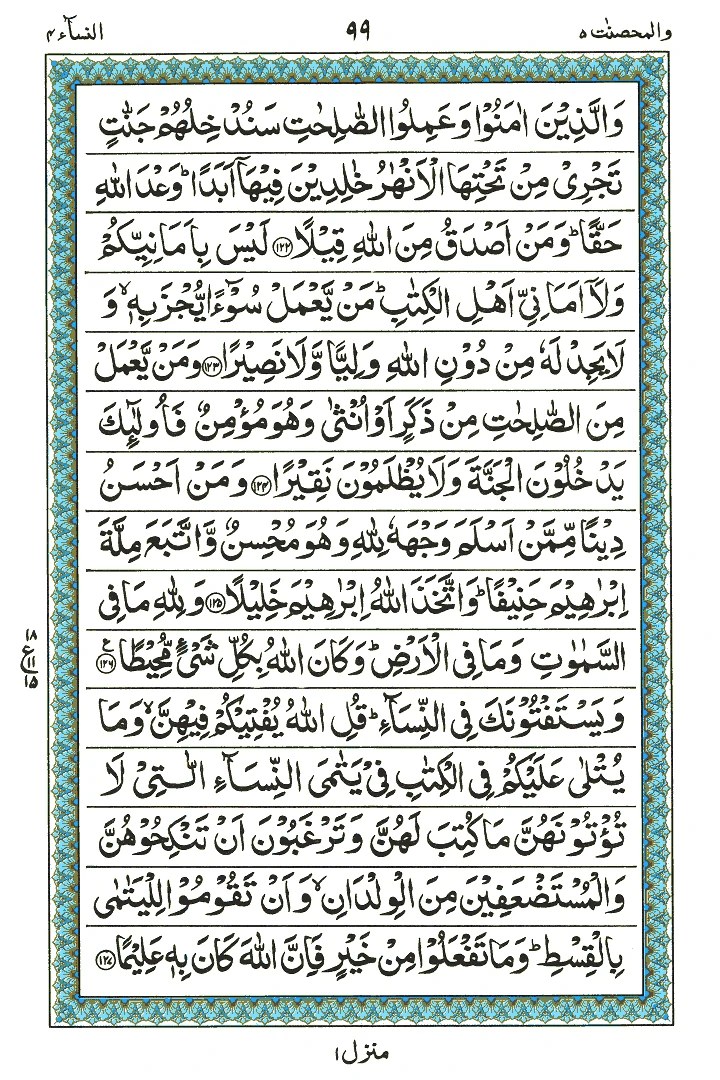 والمحصنت ٥
٩٩
النسآء ٤
وَالَّذِيْنَ اٰمَنُوْا وَعَمِلُوا الصّٰلِحٰتِ سَنُدْخِلُهُمْ جَنّٰتٍ
تَجْرِىْ مِنْ تَحْتِهَا الْاَنْهٰرُ خٰلِدِيْنَ فِيْهَاۤ اَبَدًا ؕ وَعْدَ اللّٰهِ
حَقًّا ؕ وَمَنْ اَصْدَقُ مِنَ اللّٰهِ قِيْلًا ۝۱۲۲ لَيْسَ بِاَمَانِيِّكُمْ
وَلَاۤ اَمَانِىِّ اَهْلِ الْكِتٰبِ ؕ مَنْ يَّعْمَلْ سُوْٓءًا يُّجْزَ بِهٖ ۙ وَ
لَا يَجِدْ لَهٗ مِنْ دُوْنِ اللّٰهِ وَلِيًّا وَّلَا نَصِيْرًا ۝۱۲۳ وَمَنْ يَّعْمَلْ
مِنَ الصّٰلِحٰتِ مِنْ ذَكَرٍ اَوْ اُنْثٰى وَهُوَ مُؤْمِنٌ فَاُولٰٓئِكَ
يَدْخُلُوْنَ الْجَنَّةَ وَلَا يُظْلَمُوْنَ نَقِيْرًا ۝۱۲۴ وَمَنْ اَحْسَنُ
دِيْنًا مِّمَّنْ اَسْلَمَ وَجْهَهٗ لِلّٰهِ وَهُوَ مُحْسِنٌ وَّاتَّبَعَ مِلَّةَ
اِبْرٰهِيْمَ حَنِيْفًا ؕ وَاتَّخَذَ اللّٰهُ اِبْرٰهِيْمَ خَلِيْلًا ۝۱۲۵ وَلِلّٰهِ مَا فِى
السَّمٰوٰتِ وَمَا فِى الْاَرْضِ ؕ وَكَانَ اللّٰهُ بِكُلِّ شَىْءٍ مُّحِيْطًا ۝۱۲۶ ع
۱۸
ع
۱۱
۱۵
وَيَسْتَفْتُوْنَكَ فِى النِّسَآءِ ؕ قُلِ اللّٰهُ يُفْتِيْكُمْ فِيْهِنَّ ۙ وَمَا
يُتْلٰى عَلَيْكُمْ فِى الْكِتٰبِ فِىْ يَتٰمَى النِّسَآءِ الّٰتِىْ لَا
تُؤْتُوْنَهُنَّ مَا كُتِبَ لَهُنَّ وَتَرْغَبُوْنَ اَنْ تَنْكِحُوْهُنَّ
وَالْمُسْتَضْعَفِيْنَ مِنَ الْوِلْدَانِ ۙ وَاَنْ تَقُوْمُوْا لِلْيَتٰمٰى
بِالْقِسْطِ ؕ وَمَا تَفْعَلُوْا مِنْ خَيْرٍ فَاِنَّ اللّٰهَ كَانَ بِهٖ عَلِيْمًا ۝۱۲۷
منزل ۱